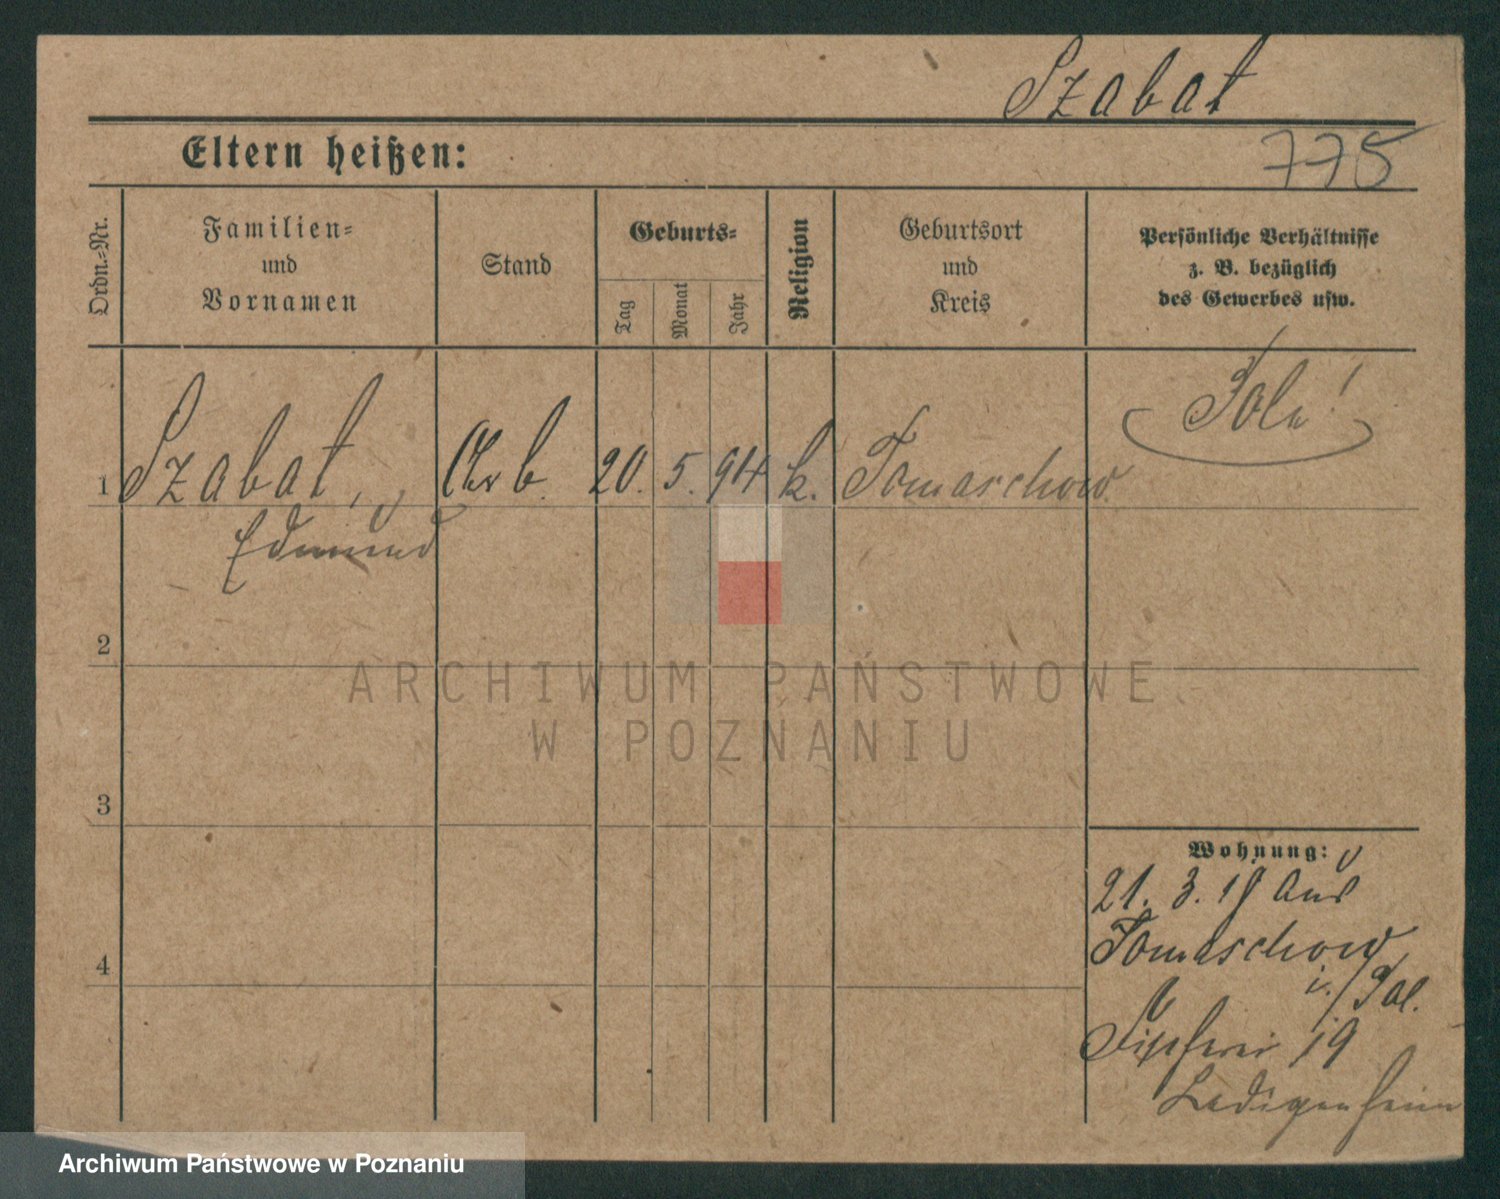 Szabat
Eltern heißen:
775
Ordn.-Nr.
Familien-
und
Vornamen
Stand
Geburts-
Tag
Monat
Jahr
Religion
Geburtsort
und
Kreis
Persönliche Verhältnisse
z. B. bezüglich
des Gewerbes usw.
Pole!
1
Szabat,
Arb.
20.
5.
94
k.
Tomaschow.
Edmund
2
ARCHIWUM PAŃSTWOWE
W POZNANIU
3
Wohnung:
21. 3. 19 aus
Tomaschow
i./Pol.
4
Fischerei 19
Ledigenheim
Archiwum Państwowe w Poznaniu